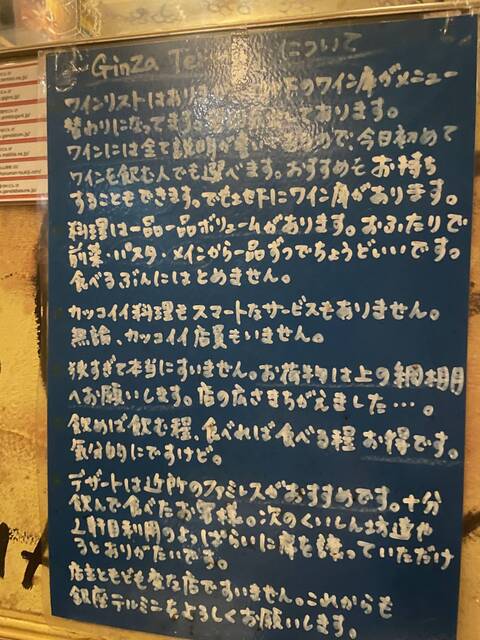 Ginza Te について
ワインリストはありま 下のワイン庫がメニュー
替わりになってます。 ております。
ワインには全て説明が ので、今日初めて
ワインを飲む人でも選べます。おすすめもお持ち
することもできます。でも地下にワイン庫があります。
料理は一品一品ボリュームがあります。おふたりで
前菜・パスタ・メインから一品ずつでちょうどいいです。
食べるぶんにはとめません。
カッコイイ料理もスマートなサービスもありません。
無論、カッコイイ店員もいません。
狭すぎて本当にすいません。お荷物は上の網棚
へお願いします。店の広さまちがえました…。
飲めば飲む程、食べれば食べる程お得です。
気分的にですけど。
デザートは近所のファミレスがおすすめです。十分
飲んで食べたお客様。次のくいしん坊達や
2軒目利用のよっぱらいに席を譲っていただけ
るとありがたいです。
店主ともども変な店ですいません。これからも
銀座テルミニをよろしくお願いします。